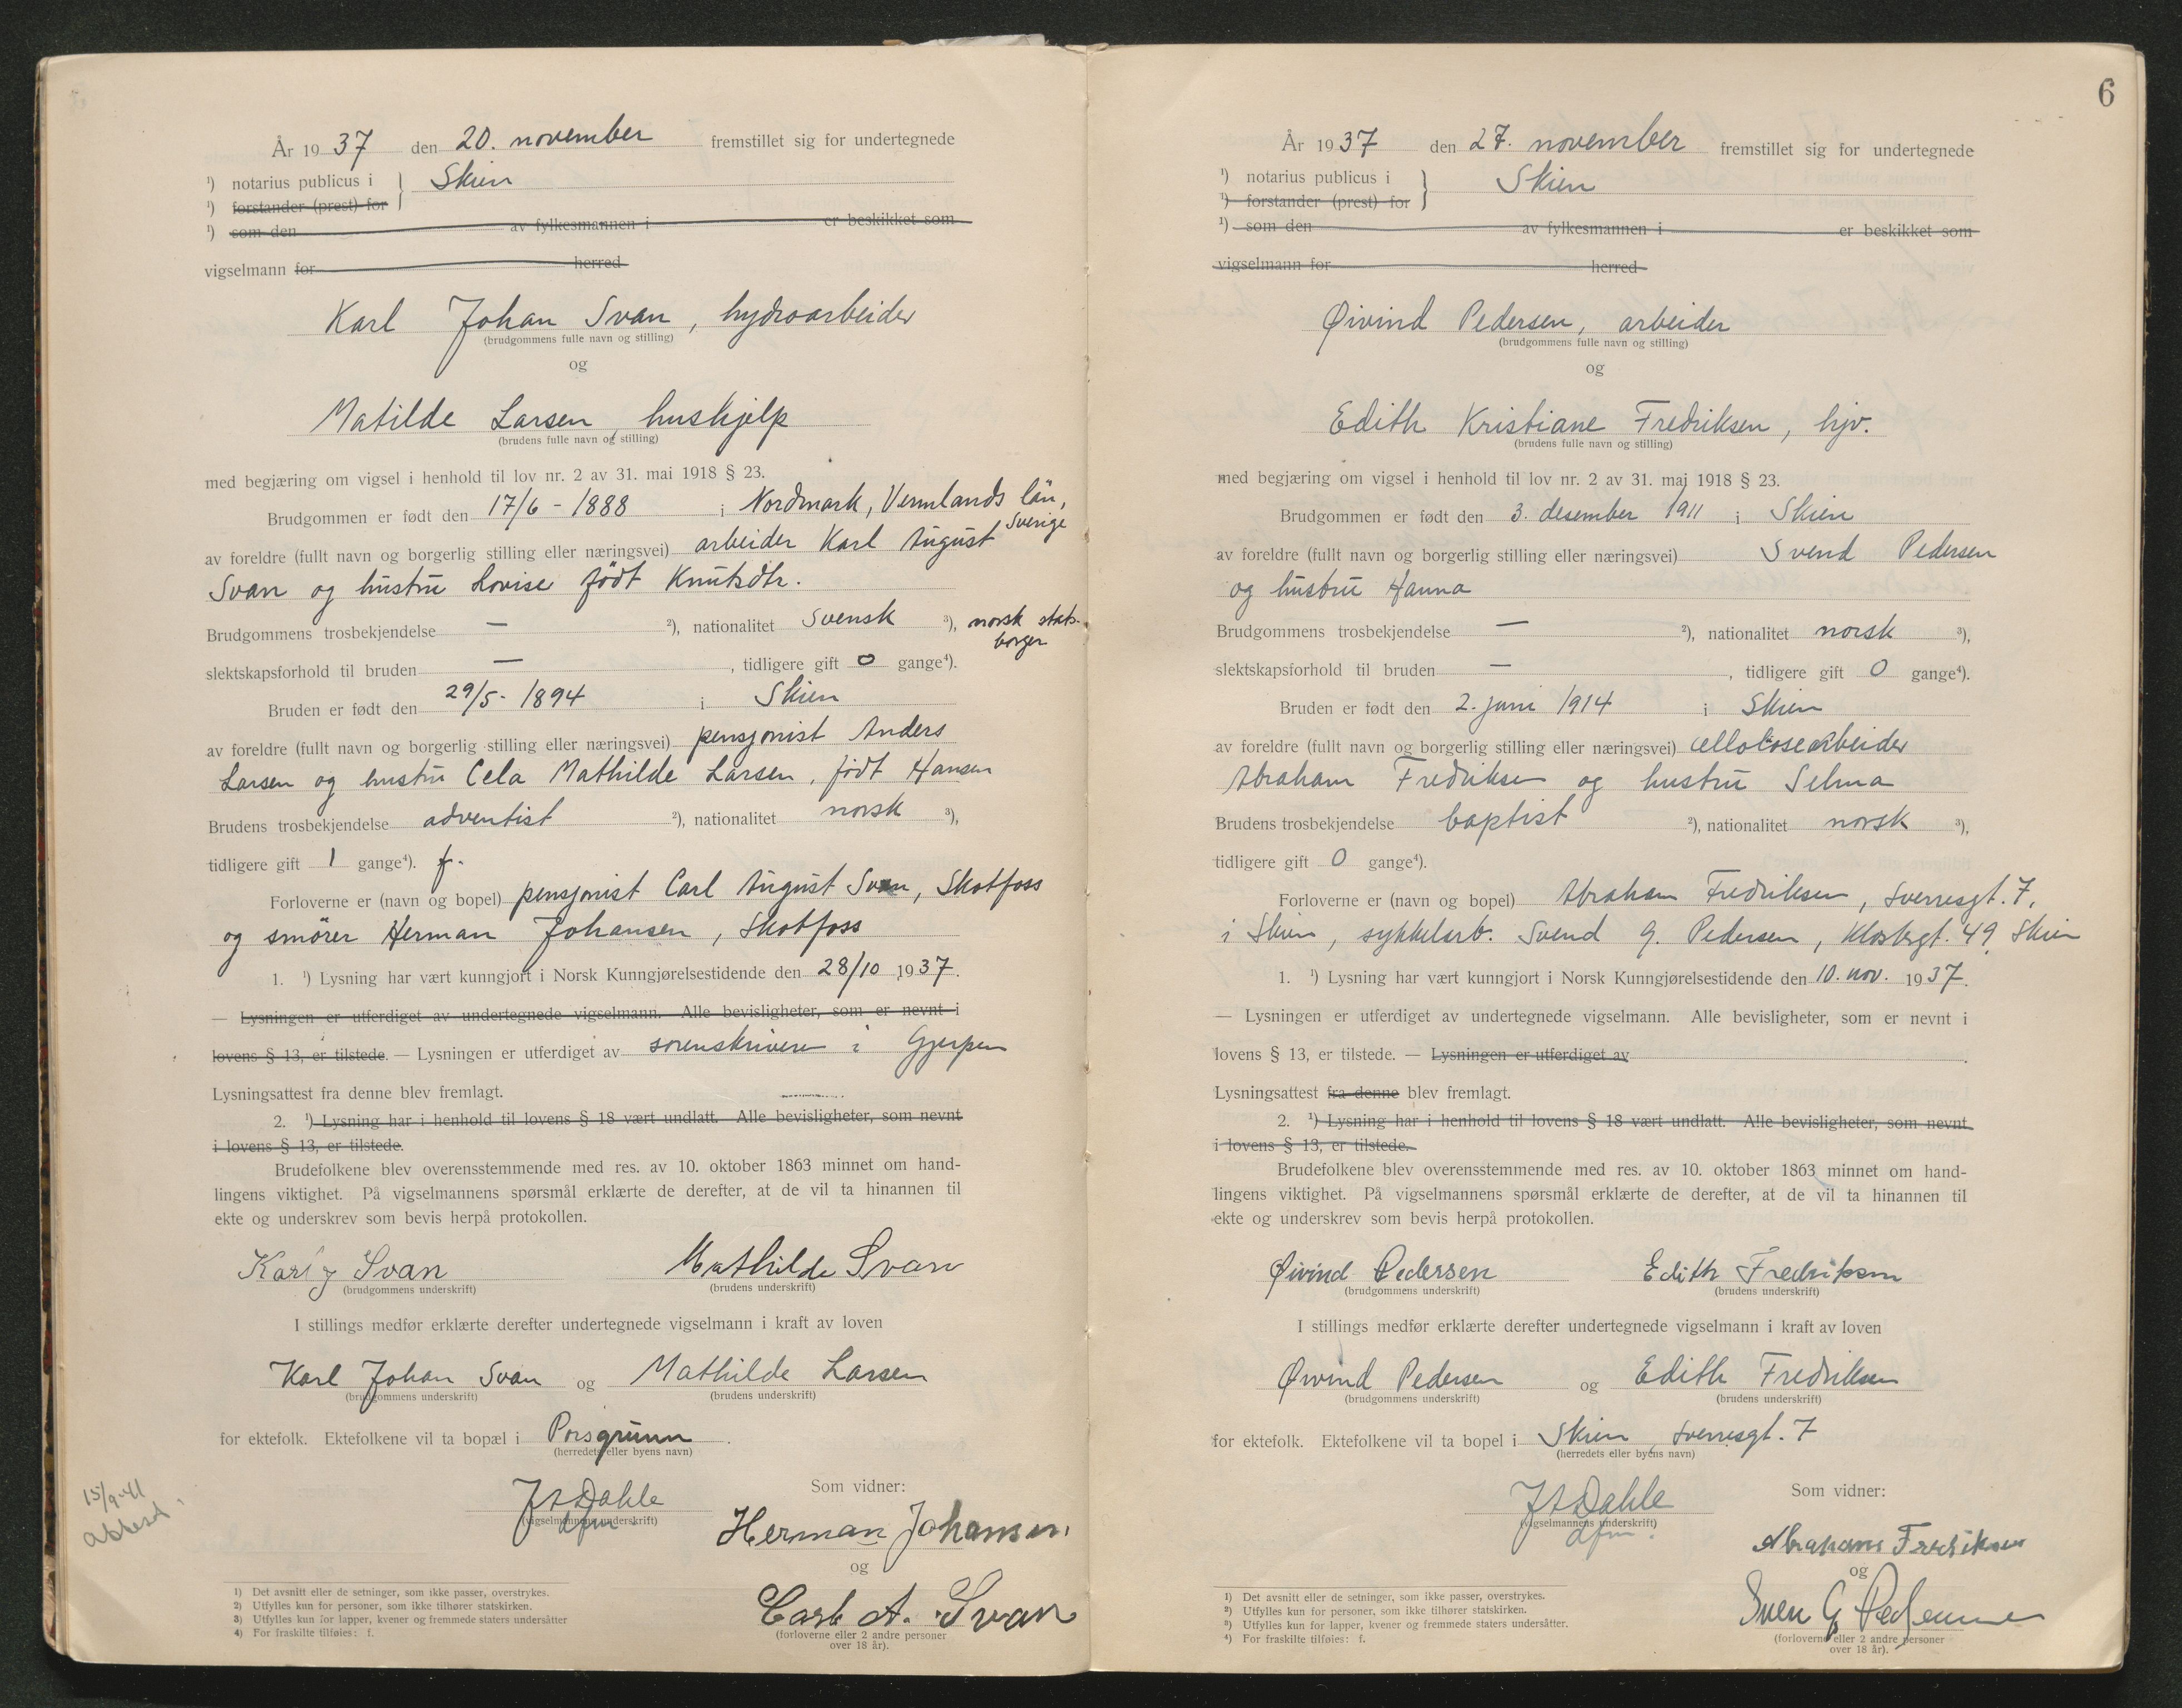 År 1937 den 20. november fremstillet sig for undertegnede
¹) notarius publicus i } Skien
¹) forstander (prest) for
¹) som den av fylkesmannen i er beskikket som
vigselmann for herred
Karl Johan Svan, hydroarbeider
(brudgommens fulle navn og stilling)
og
Matilde Larsen, huskjelp
(brudens fulle navn og stilling)
med begjæring om vigsel i henhold til lov nr. 2 av 31. mai 1918 § 23.
Brudgommen er født den 17/6 - 1888 i Nordmark, Vermlands län,
Sverige
av foreldre (fullt navn og borgerlig stilling eller næringsvei) arbeider Karl August
Svan og hustru Lovise født Knutsdtr.
Brudgommens trosbekjendelse — ²), nationalitet Svensk ³), norsk stats-
borger
slektskapsforhold til bruden — , tidligere gift 0 gange⁴).
Bruden er født den 29/5 - 1894 i Skien
av foreldre (fullt navn og borgerlig stilling eller næringsvei) pensjonist Anders
Larsen og hustru Cela Mathilde Larsen, født Hansen
Brudens trosbekjendelse adventist ²), nationalitet norsk ³),
tidligere gift 1 gange⁴). f.
Forloverne er (navn og bopel) pensjonist Carl August Svan, Skotfoss
og smører Herman Johansen, Skotfoss
1. ¹) Lysning har vært kunngjort i Norsk Kunngjørelsestidende den 28/10 1937.
— Lysningen er utferdiget av undertegnede vigselmann. Alle bevisligheter, som er nevnt i
lovens § 13, er tilstede. — Lysningen er utferdiget av sorenskriveren i Gjerpen
Lysningsattest fra denne blev fremlagt.
2. ¹) Lysning har i henhold til lovens § 18 vært undlatt. Alle bevisligheter, som nevnt
i lovens § 13, er tilstede.
Brudefolkene blev overensstemmende med res. av 10. oktober 1863 minnet om hand-
lingens viktighet. På vigselmannens spørsmål erklærte de derefter, at de vil ta hinannen til
ekte og underskrev som bevis herpå protokollen.
Karl J Svan Mathilde Svan
(brudgommens underskrift) (brudens underskrift)
I stillings medfør erklærte derefter undertegnede vigselmann i kraft av loven
Karl Johan Svan og Mathilde Larsen
(brudgommens underskrift) (brudens underskrift)
for ektefolk. Ektefolkene vil ta bopæl i Porsgrunn.
(herredets eller byens navn)
15/9-41
attest
Som vidner:
J A Dahle
(vigselmannens underskrift)
dfm
Herman Johansen.
og
Carl A. Svan
(forloverne eller 2 andre personer
over 18 år).
1) Det avsnitt eller de setninger, som ikke passer, overstrykes.
2) Utfylles kun for personer, som ikke tilhører statskirken.
3) Utfylles kun for lapper, kvener og fremmede staters undersåtter
4) For fraskilte tilføies: f.
6
År 1937 den 27. november fremstillet sig for undertegnede
¹) notarius publicus i } Skien
¹) forstander (prest) for
¹) som den av fylkesmannen i er beskikket som
vigselmann for herred
Øivind Pedersen, arbeider
(brudgommens fulle navn og stilling)
og
Edith Kristiane Fredriksen, hjv.
(brudens fulle navn og stilling)
med begjæring om vigsel i henhold til lov nr. 2 av 31. mai 1918 § 23.
Brudgommen er født den 3. desember 1911 i Skien
av foreldre (fullt navn og borgerlig stilling eller næringsvei) Svend Pedersen
og hustru Hanna
Brudgommens trosbekjendelse — ²), nationalitet norsk ³),
slektskapsforhold til bruden — , tidligere gift 0 gange⁴).
Bruden er født den 2. juni 1914 i Skien
av foreldre (fullt navn og borgerlig stilling eller næringsvei) cellolosearbeider
Abraham Fredriksen og hustru Selma
Brudens trosbekjendelse baptist ²), nationalitet norsk ³),
tidligere gift 0 gange⁴).
Forloverne er (navn og bopel) Abraham Fredriksen, Sverresgt. 7,
i Skien, sykkelarb. Svend G. Pedersen, Klostergt. 49 Skien
1. ¹) Lysning har vært kunngjort i Norsk Kunngjørelsestidende den 10. nov. 1937.
— Lysningen er utferdiget av undertegnede vigselmann. Alle bevisligheter, som er nevnt i
lovens § 13, er tilstede. — Lysningen er utferdiget av .
Lysningsattest fra denne blev fremlagt.
2. ¹) Lysning har i henhold til lovens § 18 vært undlatt. Alle bevisligheter, som nevnt
i lovens § 13, er tilstede.
Brudefolkene blev overensstemmende med res. av 10. oktober 1863 minnet om hand-
lingens viktighet. På vigselmannens spørsmål erklærte de derefter, at de vil ta hinannen til
ekte og underskrev som bevis herpå protokollen.
Øivind Pedersen Edith Fredriksen
(brudgommens underskrift) (brudens underskrift)
I stillings medfør erklærte derefter undertegnede vigselmann i kraft av loven
Øivind Pedersen og Edith Fredriksen
(brudgommens underskrift) (brudens underskrift)
for ektefolk. Ektefolkene vil ta bopel i Skien, Sverresgt. 7
(herredets eller byens navn)
Som vidner:
J A Dahle
(vigselmannens underskrift)
dfm.
Abraham Fredriksen
og
Sven G Pedersen
(forloverne eller 2 andre personer
over 18 år).
1) Det avsnitt eller de setninger, som ikke passer, overstrykes.
2) Utfylles kun for personer, som ikke tilhører statskirken.
3) Utfylles kun for lapper, kvener og fremmede staters undersåtter.
4) For fraskilte tilføies: f.